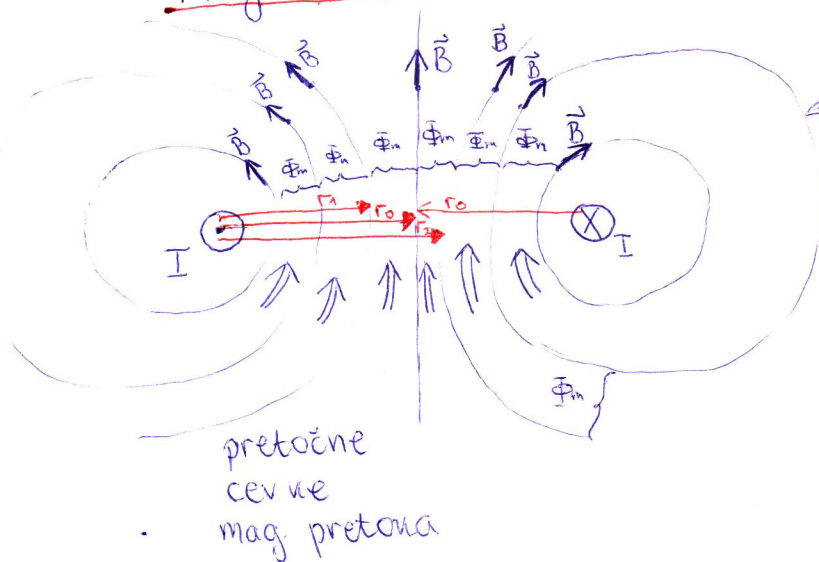 B⃗ B⃗ B⃗
B⃗ B⃗
B⃗ B⃗
Φm Φm Φm Φm Φm Φm
r1 r0 r0
r2
I I
Φm
pretočne
cevke
mag. pretoka